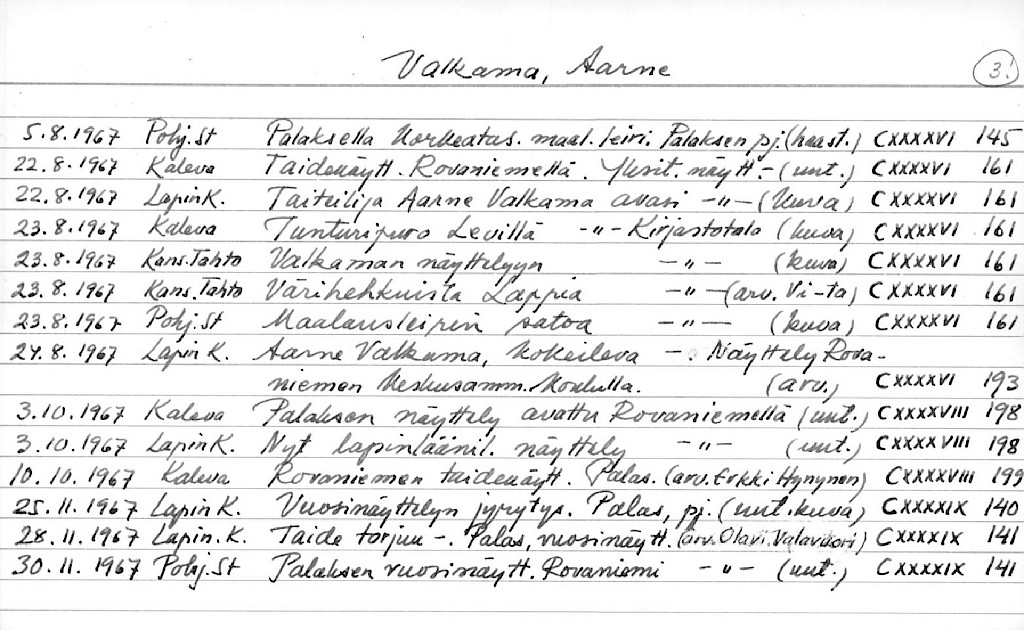 Valkama, Aarne
3.
5.8.1967 Pohj.St Palaksella Korkeatas. maal. leiri. Palaksen pj. (haast.) CXXXXVI 145
22.8.1967 Kaleva Taidenäytt. Rovaniemellä. Yksit. näytt - (uut.) CXXXXVI 161
22.8.1967 Lapin K. Taiteilija Aarne Valkama avasi -"- (kuva) CXXXXVI 161
23.8.1967 Kaleva Tunturipuro Levillä -"- Kirjastotalo (kuva) CXXXXVI 161
23.8.1967 Kans.Tahto Valkaman näyttelyyn -"- (kuva) CXXXXVI 161
23.8.1967 Kans.Tahto Värihehkuista Lappia -"- (arv. Vi-ta) CXXXXVI 161
23.8.1967 Pohj.St Maalausleirin satoa -"- (kuva) CXXXXVI 161
24.8.1967 Lapin K. Aarne Valkama, kokeileva -. Näyttely Rova-
niemen Keskusamm. koululla. (arv.) CXXXXVI 193
3.10.1967 Kaleva Palaksen näyttely avattu Rovaniemellä (uut.) CXXXXVIII 198
3.10.1967 Lapin K. Nyt lapinläänil. näyttely -"- (uut.) CXXXXVIII 198
10.10.1967 Kaleva Rovaniemen taidenäytt. Palas. (arv. Erkki Hynynen) CXXXXVIII 199
25.11.1967 Lapin K. Vuosinäyttelyn jyrytys. Palas, pj. (uut. kuva) CXXXXIX 140
28.11.1967 Lapin. K. Taide torjuu -. Palas, vuosinäytt. (arv. Olavi Valavuori) CXXXXIX 141
30.11.1967 Pohj.St Palaksen vuosinäytt. Rovaniemi -"- (uut.) CXXXXIX 141